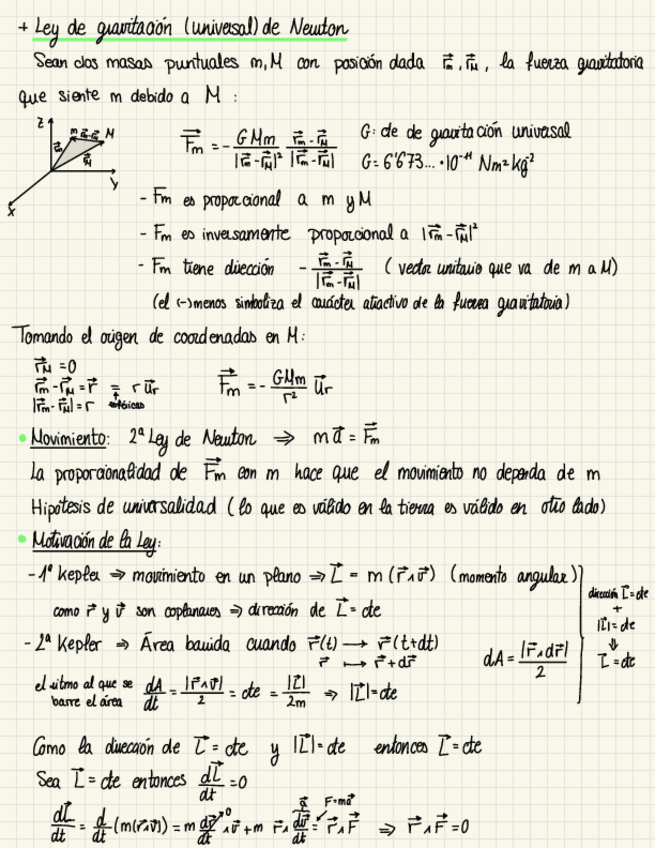 + Ley de gravitación (universal) de Newton
Sean dos masas puntuales m, M con posición dada r⃗m, r⃗M, la fuerza gravitatoria
que siente m debido a M :
z m r⃗m-r⃗M M r⃗m r⃗M y x
F⃗m = - GMm/|r⃗m-r⃗M|² (r⃗m-r⃗M)/|r⃗m-r⃗M| G: cte de gravitación universal
G= 6'673... · 10⁻¹¹ Nm²kg⁻²
- Fm es proporcional a m y M
- Fm es inversamente proporcional a |r⃗m-r⃗M|²
- Fm tiene dirección - (r⃗m-r⃗M)/|r⃗m-r⃗M| ( vector unitario que va de m a M)
(el (-)menos simboliza el carácter atractivo de la fuerza gravitatoria)
Tomando el origen de coordenadas en M:
r⃗M = 0
r⃗m-r⃗M = r⃗ = r u⃗r
|r⃗m-r⃗M| = r
F⃗m = - GMm/r² u⃗r
• Movimiento: 2ª Ley de Newton ⇒ m a⃗ = F⃗m
La proporcionalidad de F⃗m con m hace que el movimiento no dependa de m
Hipótesis de universalidad ( lo que es válido en la tierra es válido en otro lado)
• Motivación de la Ley:
- 1ª Kepler ⇒ movimiento en un plano ⇒ L⃗ = m (r⃗∧v⃗) (momento angular)
como r⃗ y v⃗ son coplanares ⇒ dirección de L⃗ = cte
- 2ª Kepler ⇒ Área barrida cuando r⃗(t) → r⃗(t+dt)
r⃗ ↦ r⃗+dr⃗
dA = |r⃗∧dr⃗|/2
el ritmo al que se barre el área dA/dt = |r⃗∧v⃗|/2 = cte = |L⃗|/2m ⇒ |L⃗| = cte
dirección L⃗=cte
+
|L⃗|=cte
⇓
L⃗=cte
Como la dirección de L⃗ = cte y |L⃗| = cte entonces L⃗ = cte
Sea L⃗ = cte entonces dL⃗/dt = 0
dL⃗/dt = d/dt (m(r⃗∧v⃗)) = m dr⃗/dt ∧ v⃗ + m r⃗∧ dv⃗/dt = r⃗∧F⃗ ⇒ r⃗∧F⃗ = 0
0 a⃗ F=ma⃗